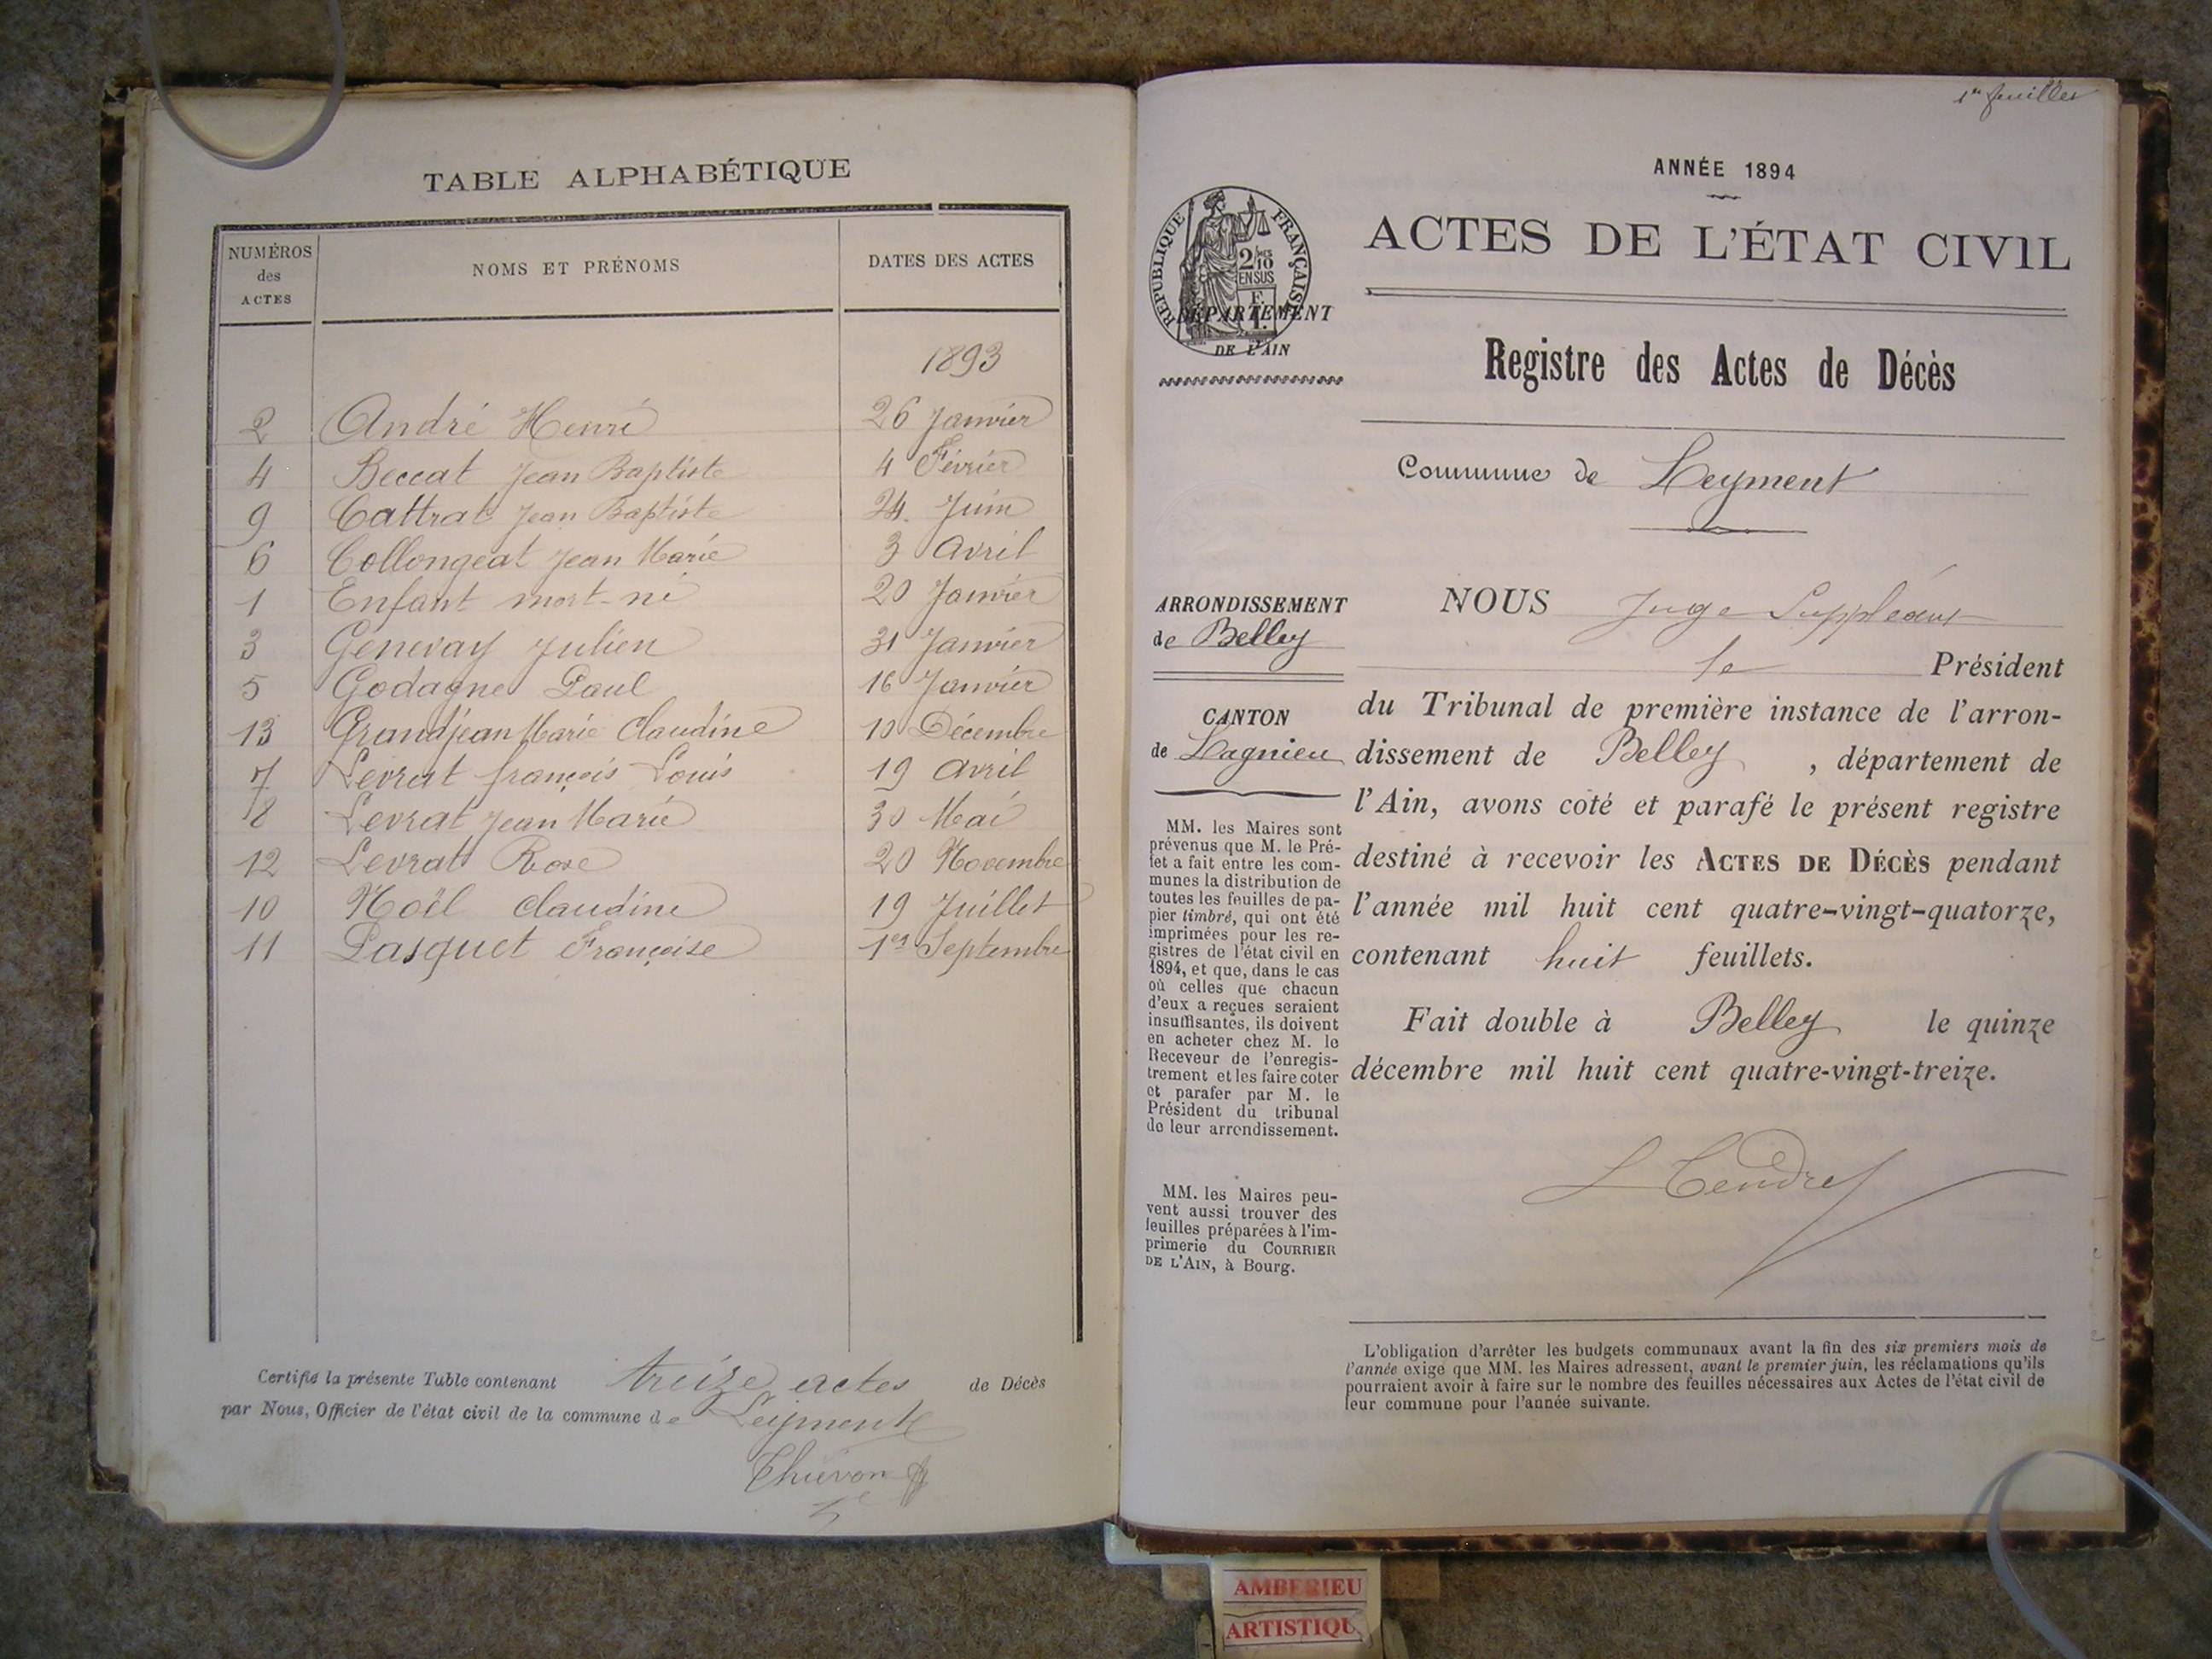 TABLE ALPHABÉTIQUE
NUMÉROS des ACTES NOMS ET PRÉNOMS DATES DES ACTES
1893
2 André Henri 26 Janvier
4 Beccat Jean Baptiste 4 Février
9 Cattrat Jean Baptiste 24 Juin
6 Collongeat Jean Marie 3 Avril
1 Enfant mort-né 20 Janvier
3 Genevay Julien 31 Janvier
5 Godagne Paul 16 Janvier
13 Grandjean Marie Claudine 10 Décembre
7 Levrat françois Louis 19 Avril
8 Levrat Jean Marie 30 Mai
12 Levrat Rose 20 Novembre
10 Noël Claudine 19 Juillet
11 Pasquet Françoise 1er Septembre
Certifié la présente Table contenant treize actes de Décès
par Nous, Officier de l'état civil de la commune de Leyment
Thévon
1er feuillet
ANNÉE 1894
RÉPUBLIQUE FRANÇAISE
2/10 EN SUS
ACTES DE L'ÉTAT CIVIL
DÉPARTEMENT
DE L'AIN
Registre des Actes de Décès
Commune de Leyment
ARRONDISSEMENT
de Belley
CANTON
de Lagnieu
MM. les Maires sont
prévenus que M. le Pré-
fet a fait entre les com-
munes la distribution de
toutes les feuilles de pa-
pier timbré, qui ont été
imprimées pour les re-
gistres de l'état civil en
1894, et que, dans le cas
où celles que chacun
d'eux a reçues seraient
insuffisantes, ils doivent
en acheter chez M. le
Receveur de l'enregis-
trement et les faire coter
et parafer par M. le
Président du tribunal
de leur arrondissement.
MM. les Maires peu-
vent aussi trouver des
feuilles préparées à l'im-
primerie du COURRIER
DE L'AIN, à Bourg.
NOUS Juge Suppléant
le Président
du Tribunal de première instance de l'arron-
dissement de Belley, département de
l'Ain, avons coté et parafé le présent registre
destiné à recevoir les ACTES DE DÉCÈS pendant
l'année mil huit cent quatre-vingt-quatorze,
contenant huit feuillets.
Fait double à Belley le quinze
décembre mil huit cent quatre-vingt-treize.
L Tendret
L'obligation d'arrêter les budgets communaux avant la fin des six premiers mois de
l'année exige que MM. les Maires adressent, avant le premier juin, les réclamations qu'ils
pourraient avoir à faire sur le nombre des feuilles nécessaires aux Actes de l'état civil de
leur commune pour l'année suivante.
AMBERIEU
ARTISTIQU